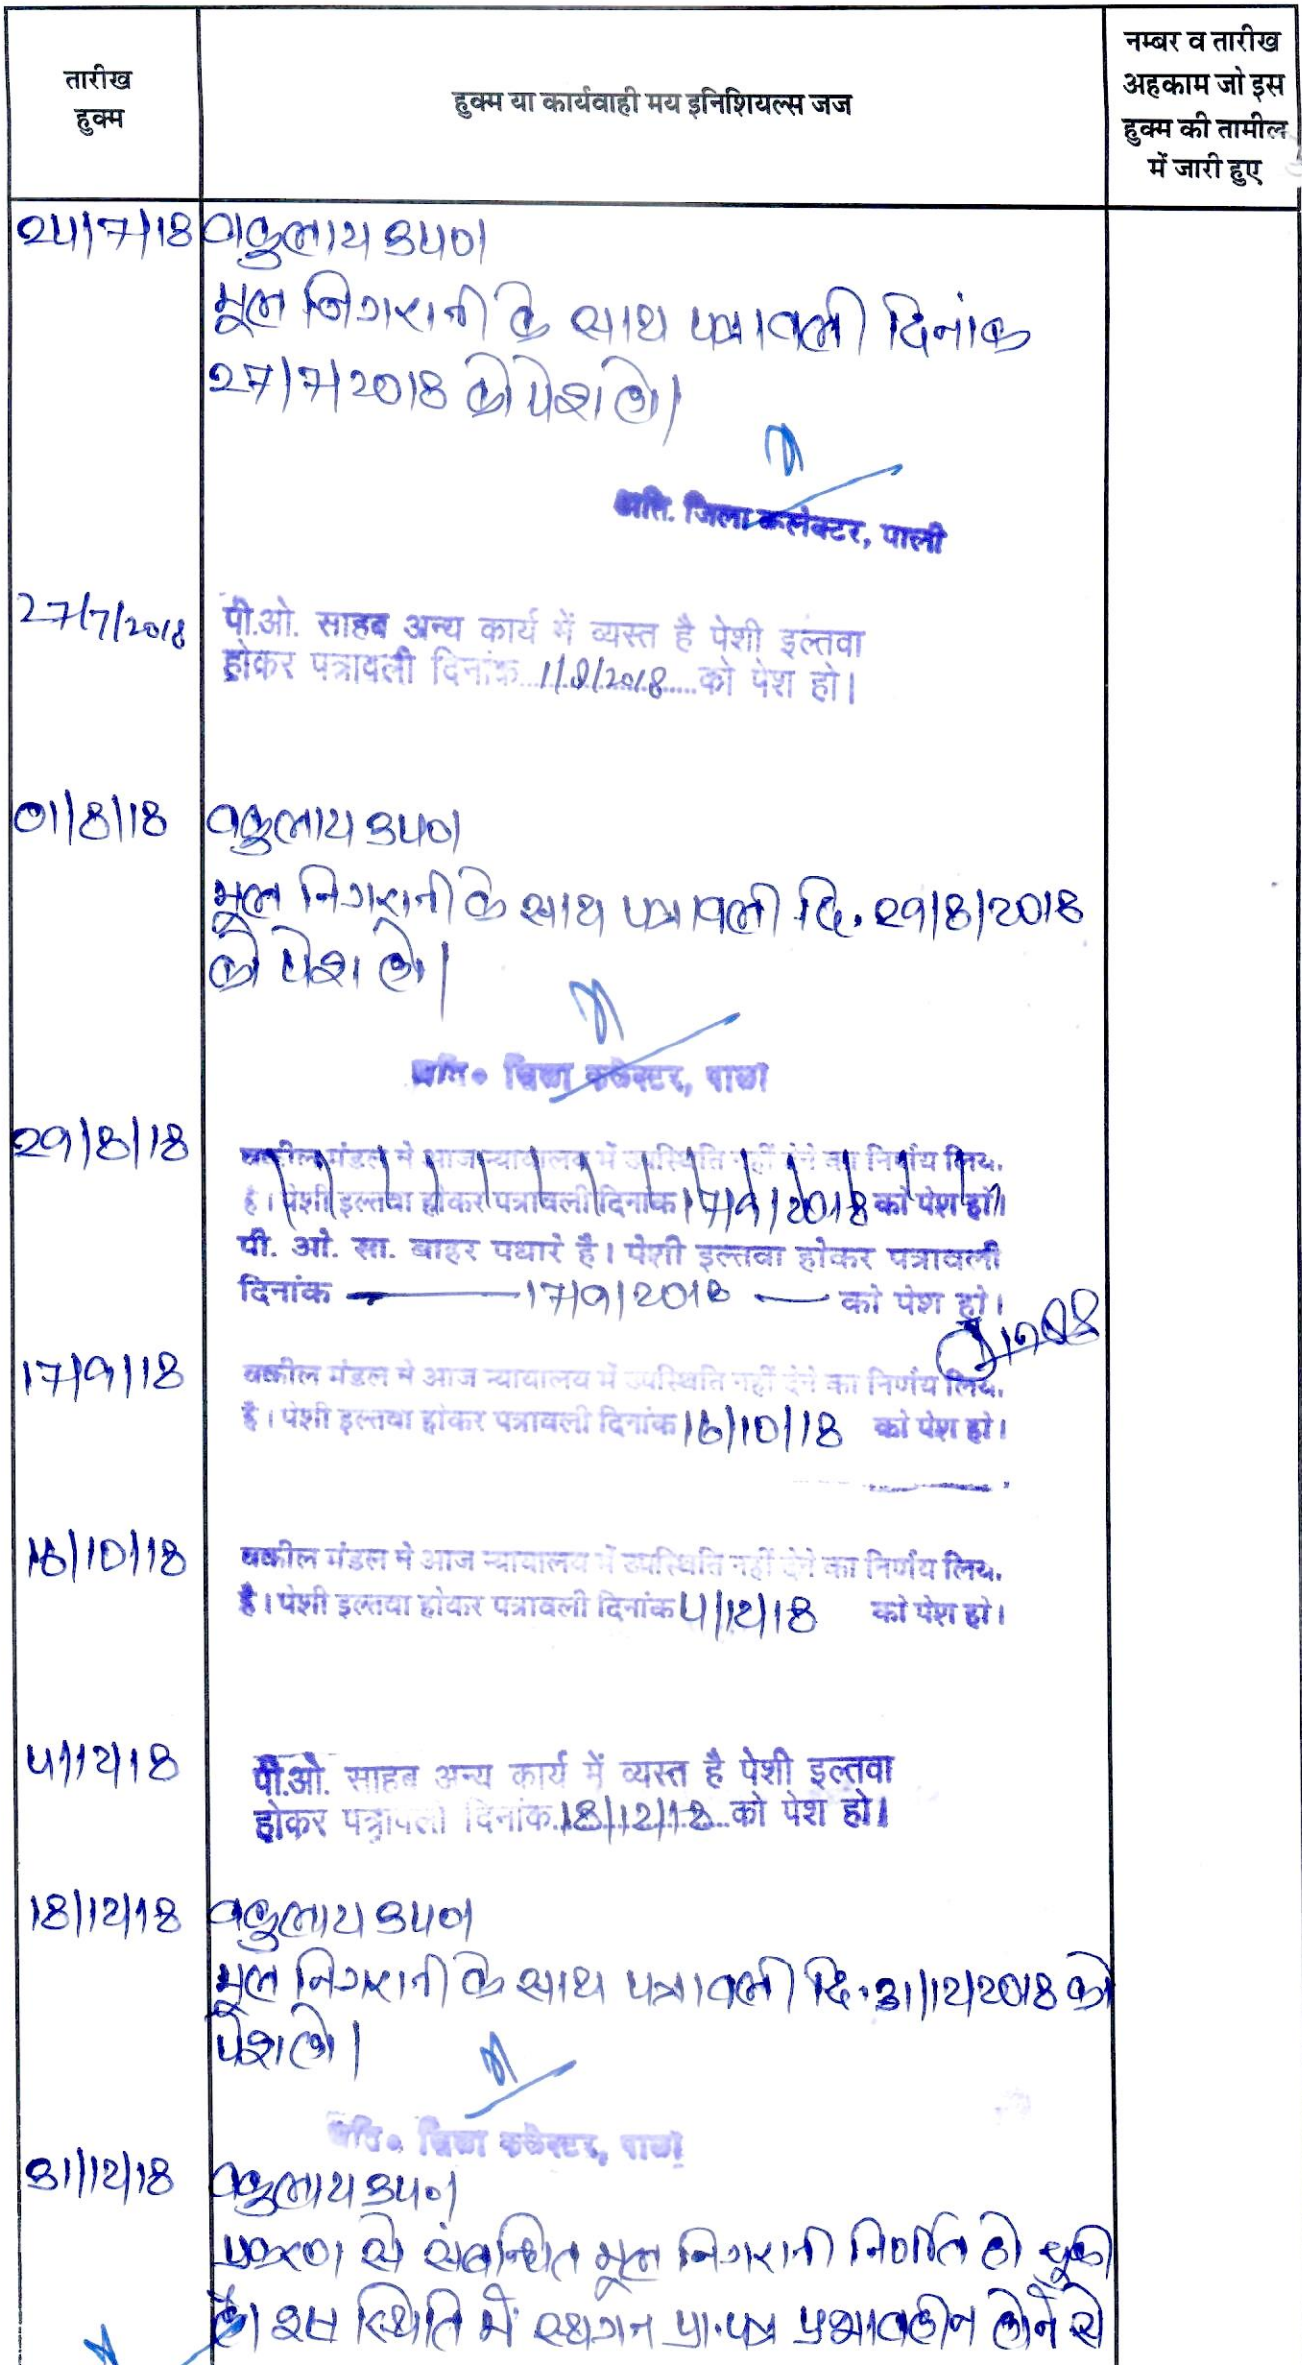 तारीख
हुक्म
हुक्म या कार्यवाही मय इनिशियल्स जज
नम्बर व तारीख
अहकाम जो इस
हुक्म की तामील
में जारी हुए
24/7/18 वकुलाय उपण
मूल निगरानी के साथ पत्रावली दिनांक
27/7/2018 को पेश हो।
अति. जिला कलेक्टर, पाली
27/7/2018 पी.ओ. साहब अन्य कार्य में व्यस्त है पेशी इल्तवा
होकर पत्रावली दिनांक 1/8/2018 को पेश हो।
01/8/18 वकुलाय उपण
मूल निगरानी के साथ पत्रावली दि. 29/8/2018
को पेश हो।
अति॰ जिला कलेक्टर, पाली
29/8/18 वकील मंडल ने आज न्यायालय में उपस्थिति नहीं देने का निर्णय लिय.
है। पेशी इल्तवा होकर पत्रावली दिनांक 17/9/2018 को पेश हो।
पी. ओ. सा. बाहर पधारे है। पेशी इल्तवा होकर पत्रावली
दिनांक — 17/9/2018 — को पेश हो।
17/9/18 वकील मंडल ने आज न्यायालय में उपस्थिति नहीं देने का निर्णय लिय.
है। पेशी इल्तवा होकर पत्रावली दिनांक 16/10/18 को पेश हो।
16/10/18 वकील मंडल ने आज न्यायालय में उपस्थिति नहीं देने का निर्णय लिय.
है। पेशी इल्तवा होकर पत्रावली दिनांक 4/12/18 को पेश हो।
4/12/18 पी.ओ. साहब अन्य कार्य में व्यस्त है पेशी इल्तवा
होकर पत्रावली दिनांक 18/12/18 को पेश हो।
18/12/18 वकुलाय उपण
मूल निगरानी के साथ पत्रावली दि. 31/12/2018 को
पेश हो।
अति॰ जिला कलेक्टर, पाली
31/12/18 वकुलाय उपण
प्रकरण से संबन्धित मूल निगरानी निर्णीत हो चुकी
है। इस स्थिति में स्थगन प्रा.पत्र प्रभावहीन होने से